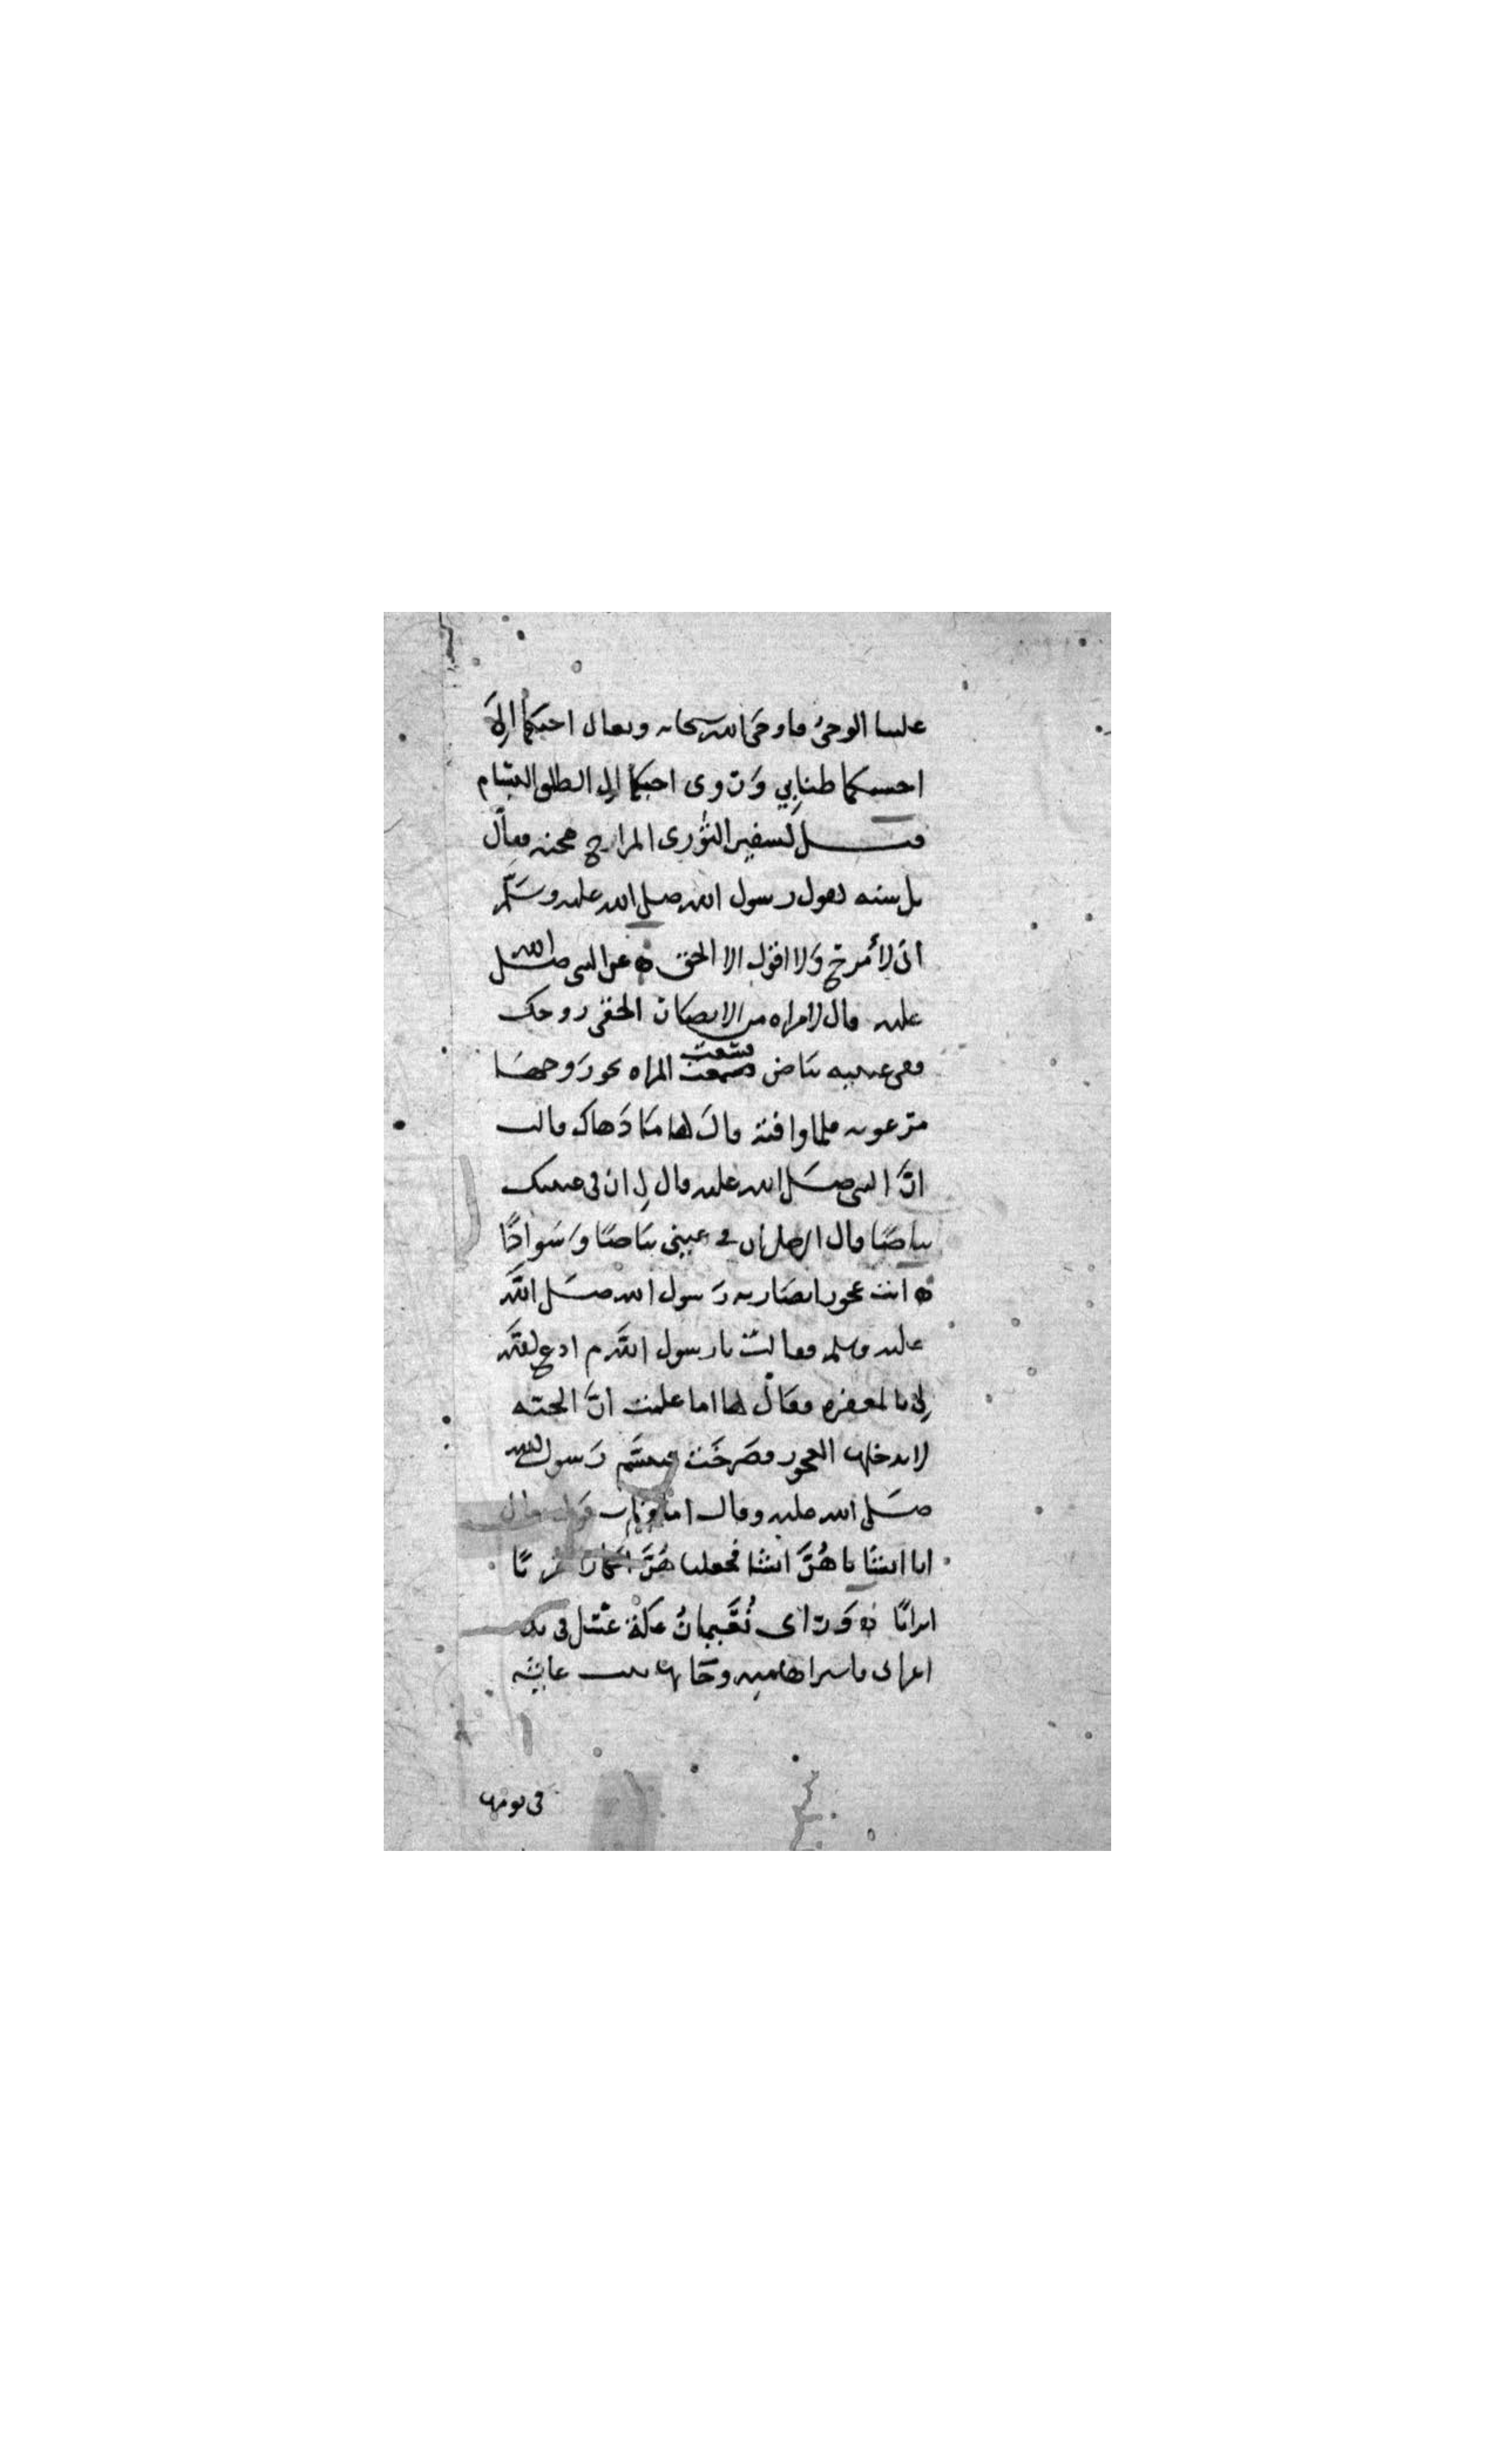 علينا الوحي فاوحى الله سبحانه وتعالى احبكما اليّ
احسنكما ظنا بي وروى احبكما اليّ الطلق البسّام
قيل لسفين الثوري المزاح هجنه فقال
بل سنه لقول رسول الله صلى الله عليه وسلّم
اني لأمزح ولا اقول الا الحق ٥ عن النبي صلى الله
عليه قال لامراه من الانصار الحقي زوجك
ففي عينيه بياض فسعت المراه نحو زوجها
مرعوبه فلما وافته قال لها ما دهاك قالت
انّ النبي صلى الله عليه قال لي ان في عينيك
بياضًا قال الرجل ان في عيني بياضًا وسوادًا
٥ اتت عجوز انصاريه رسول الله صلى الله
عليه وسلم فقالت يارسول الله ادع لي
بالمغفره فقال لها اما علمت انّ الجنّه
لا يدخلها العجوز فصرخت فتبسّم رسول الله
صلى الله عليه وقال اما
انا انشأناهنّ انشاء فجعلناهنّ ابكارا عربًا
اترابًا ٥ وراى نُعَيمانُ عكة عسل في يد
اعرابي فاشراها منه وجابها بيت عايشه
في يومها